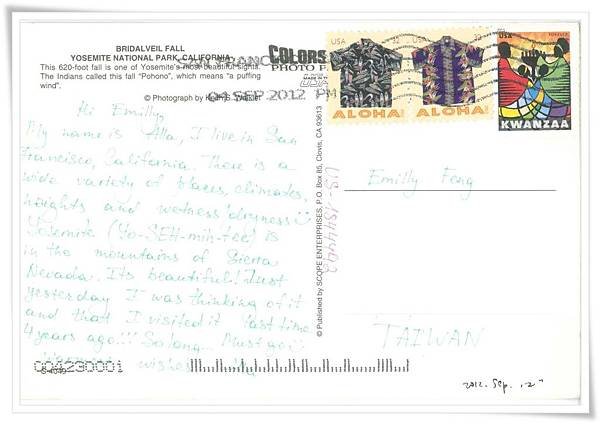 BRIDALVEIL FALL
YOSEMITE NATIONAL PARK, CALIFORNIA
This 620-foot fall is one of Yosemite's most beautiful sights.
The Indians called this fall "Pohono", which means "a puffing
wind".
© Photograph by
SAN FRANCISCO
04 SEP 2012 PM
COLORS
PHOTO
MADE IN
USA
USA 32
ALOHA!
USA 32
ALOHA!
USA FOREVER
KWANZAA
Hi Emilly,
My name is Alla, I live in San
Francisco, California. There is a
wide variety of places, climates,
heights and wetness\dryness :)
Yosemite (Yo-SEH-mih-tee) is
in the mountains of Sierra
Nevada. Its beautiful! Just
yesterday I was thinking of it
and that I visited it last time
4 years ago!!! So long... Must go :)
wishes
© Published by SCOPE ENTERPRISES, P.O. Box 85, Clovis, CA 93613
Emilly Feng
TAIWAN
004230001
S-4049
2012. Sep. 12"